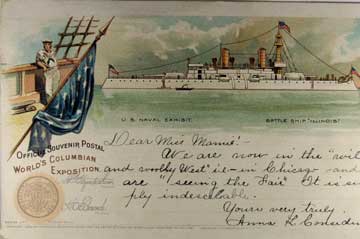 U.S. NAVAL EXHIBIT.
BATTLE SHIP "ILLINOIS."
OFFICIAL SOUVENIR POSTAL
WORLD'S COLUMBIAN
EXPOSITION
Dear Miss Mamie:-
We are now in the "wild
and woolly West" ie- in Chicago and
are "seeing the Fair" It is sim
ply indescribable.
Yours very truly.
Anna K. Considin